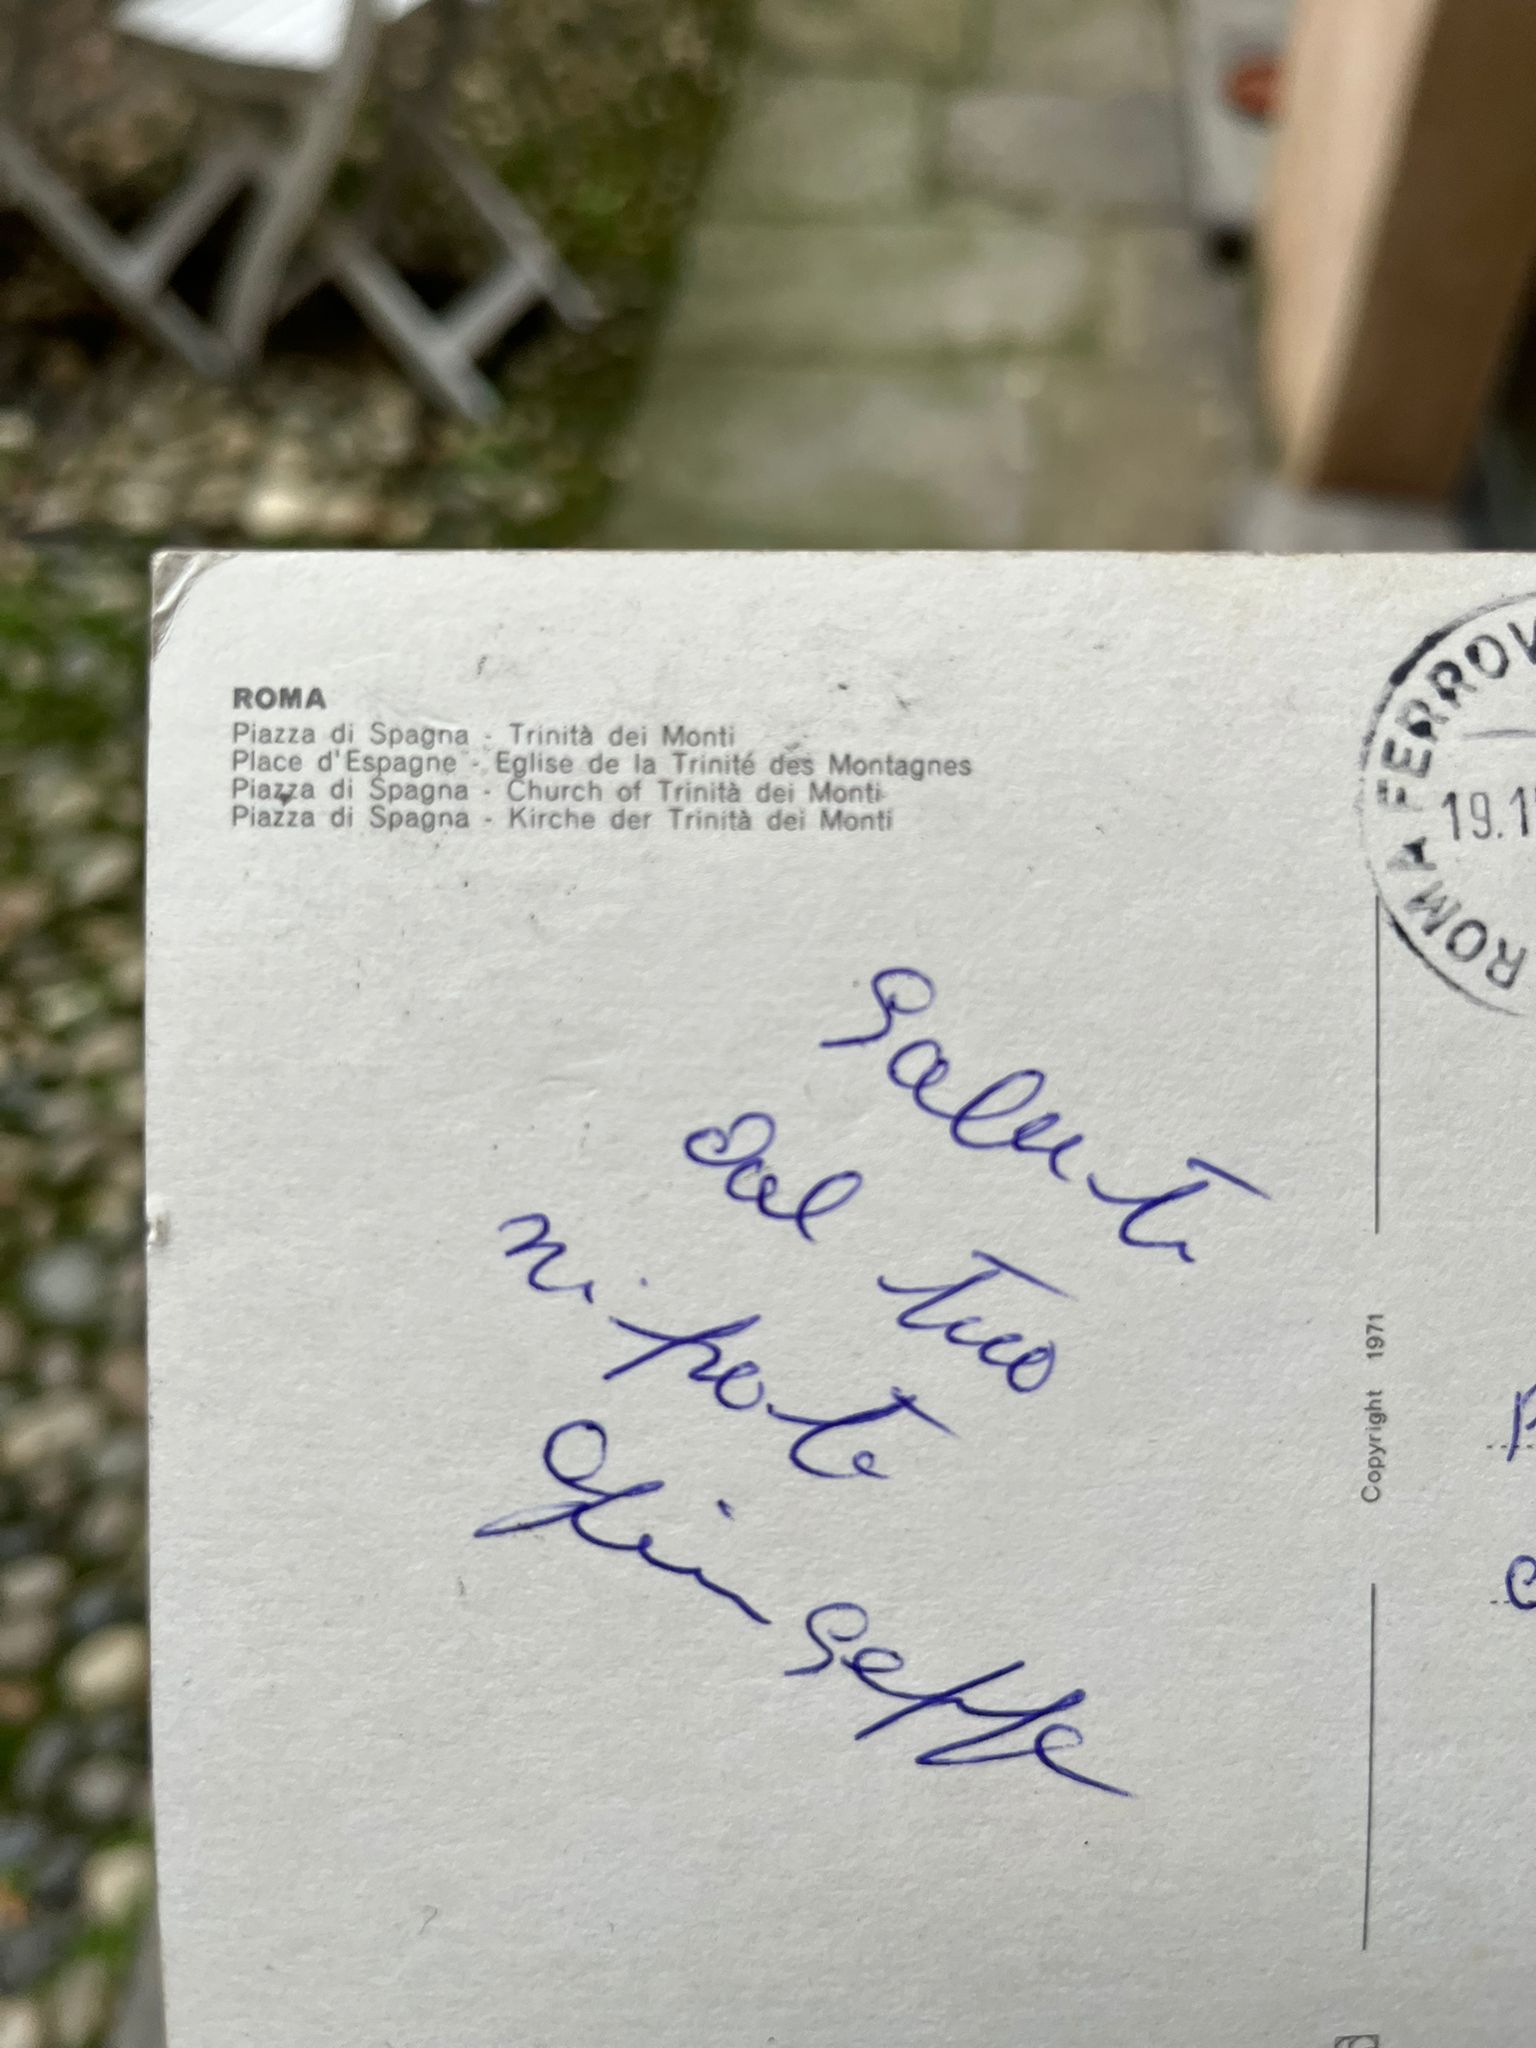 ROMA
Piazza di Spagna - Trinità dei Monti
Place d'Espagne - Eglise de la Trinité des Montagnes
Piazza di Spagna - Church of Trinità dei Monti
Piazza di Spagna - Kirche der Trinità dei Monti
Saluti
dal tuo
nipote
Giuseppe
Copyright 1971
ROMA FERROV
19.1